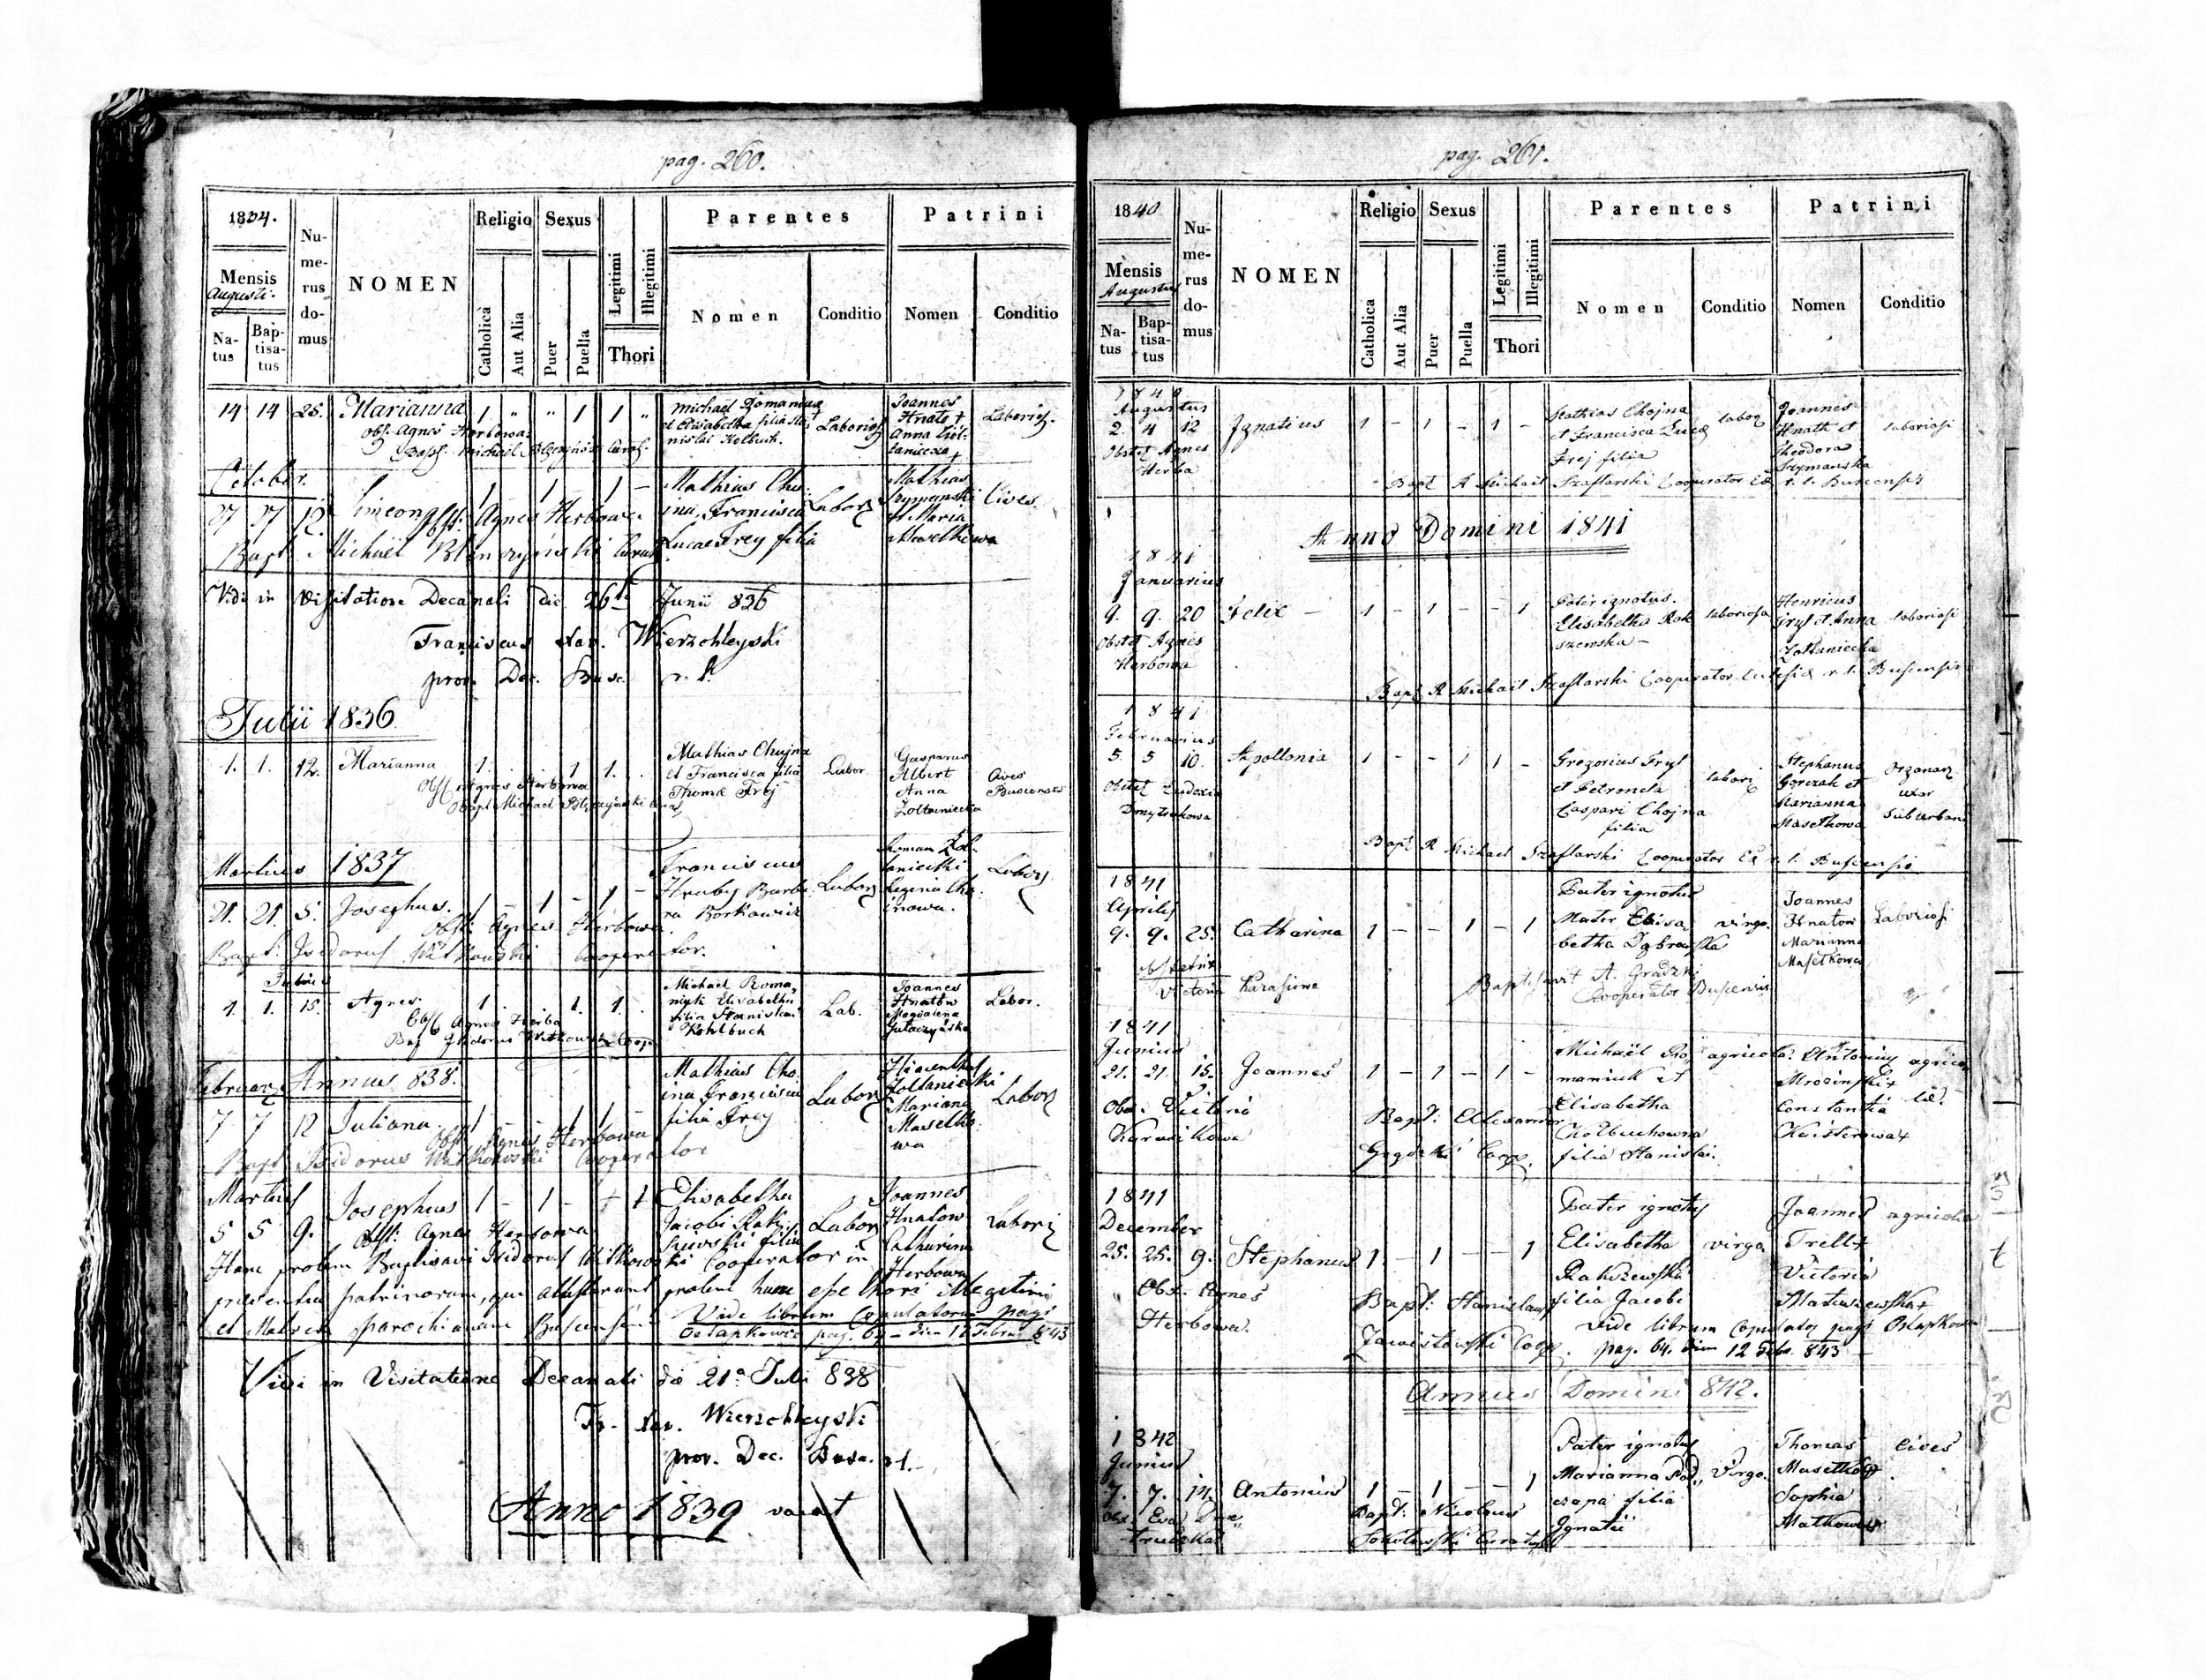 pag. 260.
1834.
Mensis
Augusti.
Natus
Baptisatus
Numerus domus
NOMEN
Religio
Catholica
Aut Alia
Sexus
Puer
Puella
Legitimi
Illegitimi
Thori
Parentes
Nomen
Conditio
Patrini
Nomen
Conditio
14 14 25. Marianna 1 " " 1 1 "
Michael Romaniuk
et Elisabetha filia Sta-
nislai Kolbuch.
Laborios
Joannes
Hnato †
Anna Żół-
taniecka †
Laborios.
Obst. Agnes Herbowa
Bapt. Michael Curat.
October.
27 27 12 Simeon 1 - 1 - 1 -
Mathias Cho-
ina, Francisca
Lucae Frey filia
Labor
Mathias
Szymański
et Maria
Masełkowa
Cives
Obst: Agnes Herbowa
Bapt. Michaël Curat
Vidi in Visitatione Decanali die 26ta Junii 836
Franciscus Xav. Wierzchleyski
prov. Dec. Busc. r. l.
Julii 1836.
1. 1. 12. Marianna 1. 1 1.
Mathias Chojna
et Francisca filia
Thomæ Frej
Labor
Gasparus
Albert
Anna
Żołtaniecka
Cives
Buscenses
Obst Agnes Herbowa
Bapt Michael
Martius 1837
21. 21. 5. Josephus. 1 - 1 - 1 -
Franciscus
Hruby Barba-
ra Borkowicz
Labor
Roman Żoł-
taniecki
Regina Cho-
inowa.
Labor
Obst: Agnes Herbowa.
Bapt: Isidorus Witkowski Cooperator.
1. 1. 15. Agnes 1. 1. 1.
Michael Roma-
niuk Elisabetha
filia Stanislai
Kohlbuch
Lab.
Joannes
Hnatów
Magdalena
Labor.
Obst Agnes Herba
Bap Isidorus Witkowski Coop
Februar Annus 838.
7 7 12 Juliana 1 - - 1 1 -
Mathias Cho-
ina Francisca
filia Frey
Labor
Hiacenthus
Żołtaniecki
Mariana
Masełko-
wa
Labor
Obst: Agnes Herbowa
Bapt Isidorus Witkowski Cooperator
Martius
5 5 9. Josephus 1 - 1 - 1
Elisabetha
Jacobi Rak-
szewski filia
Labor
Joannes
Hnatow
Catharina
Herbowa
Labori
Obst: Agnes Herbowa
Hanc prolem Baptisavi Isidorus Witkowski Cooperator in
presentia patrinorum, qui attestarunt prolem hanc esse thori illegitimi
et Matrem parochianam Buscensem
Vide librum Copulatorum pagi
Ostapkowce pag. 64 - diem 12 Febru. 843
Vidi in Visitatione Decanali die 21a Julii 838
Fr. Xav. Wierzchleyski
prov. Dec. Busc. r. l.
Anno 1839 vacat
pag. 261.
1840
Mensis
Augustus
Natus
Baptisatus
Numerus domus
NOMEN
Religio
Catholica
Aut Alia
Sexus
Puer
Puella
Legitimi
Illegitimi
Thori
Parentes
Nomen
Conditio
Patrini
Nomen
Conditio
1840
Augustus
2. 4 12 Ignatius 1 - 1 - 1 -
Mathias Chojna
et Francisca Lucæ
Frej filia
labor
Joannes
Hnath et
Theodora
Szymanska
laboriosi
Obstet Agnes
Herba
Bapt R Michael Szaflarski Cooperator r. l. Buscensis
Anno Domini 1841
1841
Januarius
9. 9. 20 Felix 1 - 1 - - 1
Pater ignotus.
Elisabetha Rak-
szewska
laboriosa
Henricus
Gryf et Anna
Żołtaniecka
laboriosi
Obstet Agnes
Herbowa
Bapt R Michael Szaflarski Cooperator r. l. Buscensis
1841
Februarius
5. 5 10. Apollonia 1 - - 1 1 -
Gregorius Gryf
et Petronela
Caspari Chojna
filia
labori
Stephanus
Gorczak et
Marianna
Masełkowa
uxor
suburbani
Obstet Eudoxia
Bapt R Michael Szaflarski Cooperator r. l. Buscensis
1841
Aprilis
9. 9. 25. Catharina 1 - - 1 - 1
Pater ignotus
Mater Elisa-
betha Dąbrowska
virgo.
Joannes
Hnatow
Marianna
Masełkowa
Laboriosi
Obstetrix
Victoria Karasiowa
Baptisavit A. Gradzki
Cooperator Buscensis
1841
Junius
21. 21. 15. Joannes 1 - 1 - 1 -
Michaël Ro-
maniuk et
Elisabetha
Kolbuchowna
filia Stanislai.
agricola.
Antonius
Mrozinski +
Constantia
Keisterowa +
agricolæ.
Obs. Victoria
Karasikowa
Bapt: Alexander
Coop.
1841
December
25. 25. 9. Stephanus 1 - 1 - - 1
Pater ignotus
Elisabetha
Rakszewska
filia Jacobi
virgo
Joannes
Trell +
Victoria
Matuszewska +
agricola
Obst. Agnes
Herbowa.
Bapt: Stanislaus
Zawistowski Coop.
Vide librum Copulator pagi Ostapkowce
pag. 64. diem 12 Febr. 843
Annus Domini 842.
1842
Junius
7. 7. 14. Antonius 1 - 1 - - 1
Pater ignotus
Marianna Pod-
czapa filia
Ignatii
Virgo.
Thomas
Masełko +
Sophia
Matkowska
Cives
Obs. Eva
Bapt: Nicolaus
Sokołowski Curatus